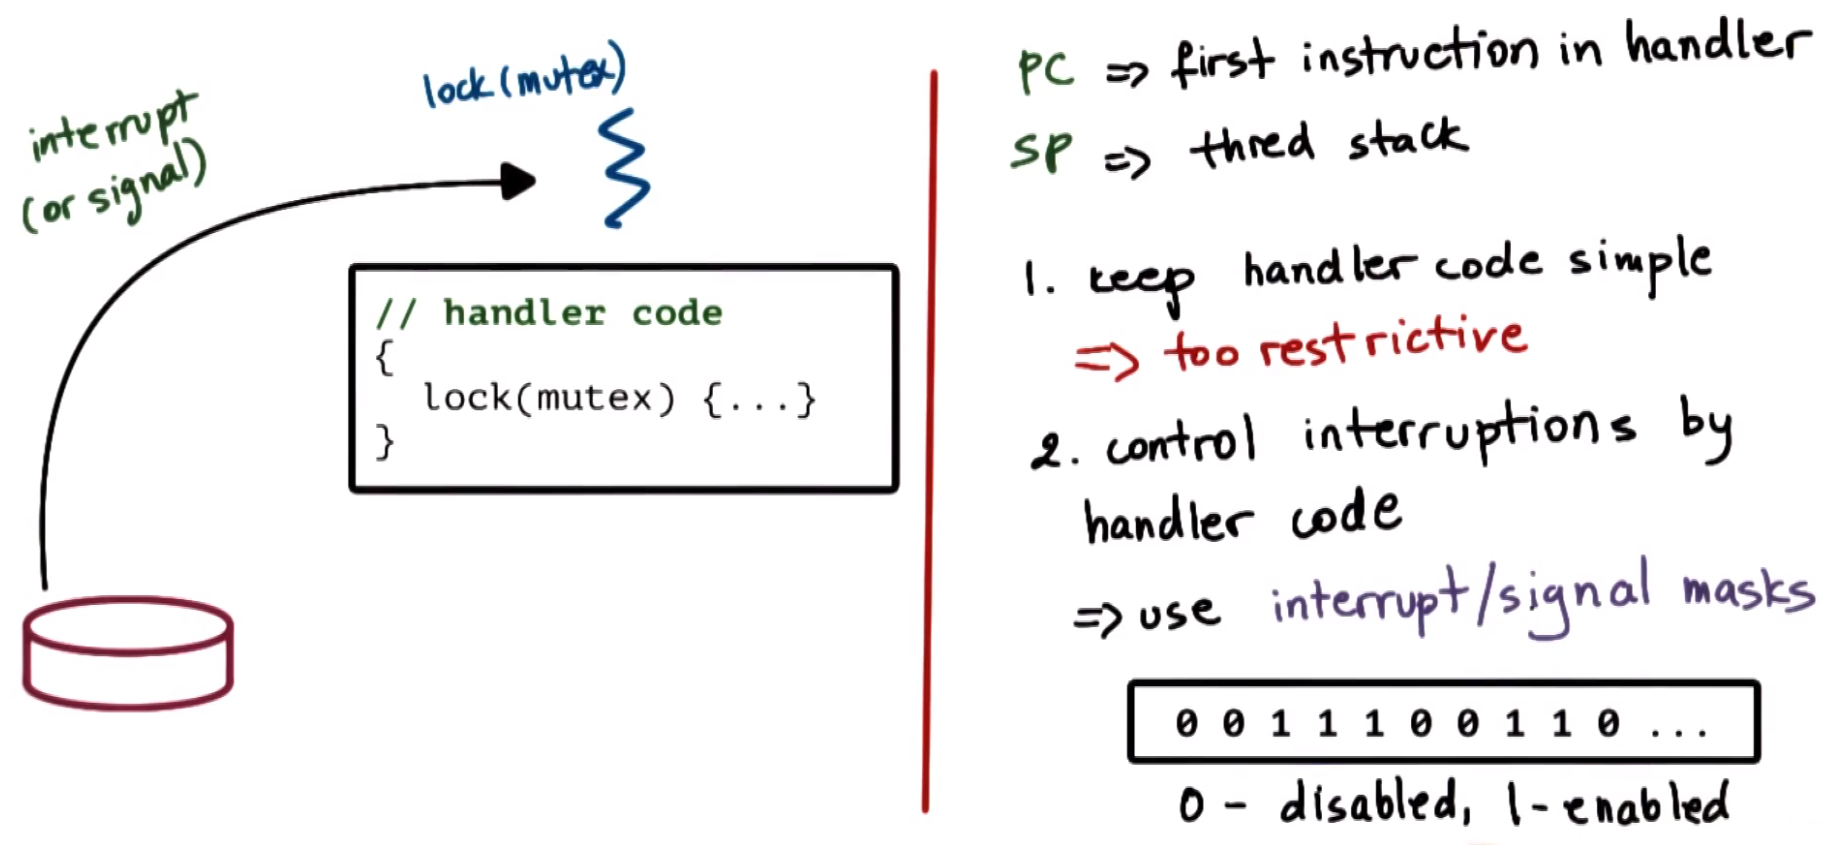 interrupt
(or signal)
lock(mutex)
// handler code
{
lock(mutex) {...}
}
PC => first instruction in handler
SP => thred stack
1. keep handler code simple
=> too restrictive
2. control interruptions by
handler code
=> use interrupt/signal masks
0 0 1 1 1 0 0 1 1 0 ...
0 - disabled, 1 - enabled